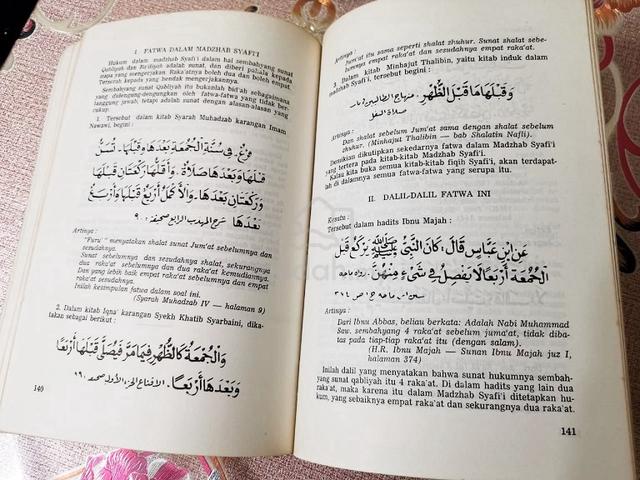 I FATWA DALAM MADZHAB SYAFI'I
Hukum dalam madzhab Syafi'i dalam hal sembahyang sunat
Qabliyah dan Ba'diyah adalah sunat, dan diberi pahala kepada
siapa yang mengerjakan. Raka'atnya boleh dua dan boleh empat.
Terserah kepada yang hendak mengerjakannya.
Sembahyang sunat Qabliyah itu bukanlah bid'ah sebagaimana
yang didengung-dengungkan oleh fatwa-fatwa yang tidak ber-
tanggung jawab, tetapi adalah sunat dengan alasan-alasan yang
cukup.
1. Tersebut dalam kitab Syarah Muhadzab karangan Imam
Nawawi, begini :
فرع. في سنة الجمعة بعدها وقبلها. تسن
قبلها وبعدها صلاة. وأقلها ركعتان قبلها
وركعتان بعدها. والأكمل أربع قبلها وأربع
بعدها. شرح المهذب الرابع صحيفة: ٩.
Artinya :
"Furu' " menyatakan shalat sunat Jum'at sebelumnya dan
sesudahnya.
Sunat sebelumnya dan sesudahnya shalat, sekurangnya
dua raka'at sebelumnya dan dua raka'at kemudiannya.
Dan yang lebih baik empat raka'at sebelumnya dan empat
raka'at sesudahnya.
Inilah kesimpulan fatwa dalam soal ini.
(Syarah Muhadzab IV — halaman 9)
2. Dalam kitab Iqna' karangan Syekh Khatib Syarbaini, dika-
takan sebagai berikut :
والجمعة كالظهر فيما مر فيصلى قبلها أربعا
وبعدها أربعا. الاقناع الجزء الأول صحيفة: ٩٩
140
Artinya :
Jum'at itu sama seperti shalat zhuhur. Sunat shalat sebe-
lumnya empat raka'at dan sesudahnya empat raka'at.
3. Dalam kitab Minhajut Thalibin, yaitu kitab induk dalam
madzhab Syafi'i, tersebut begini :
وقبلها ما قبل الظهر. منهاج الطالبين : باب
صلاة النفل
Artinya :
Dan shalat sebelum Jum'at sama dengan shalat sebelum
zhukur. (Minhajut Thalibin — bab Shalatin Nafli).
Demikian dikutipkan sekedarnya fatwa dalam Madzhab Syafi'i,
yang tertera pada kitab-kitab Madzhab Syafi'i.
Kalau kita buka semua kitab-kitab fiqih Syafi'i, akan terdapat-
lah di dalamnya semua fatwa yang serupa itu.
II. DALIL-DALIL FATWA INI
Kesatu :
Tersebut dalam hadits Ibnu Majah :
عن ابن عباس قال: كان النبي ﷺ يركع قبل
الجمعة أربعا لا يفصل في شيء منهن. رواه ماجه
سنن ابن ماجه ج ١ ص ٣٧٤
Artinya :
Dari Ibnu Abbas, beliau berkata: Adalah Nabi Muhammad
Saw. sembahyang 4 raka'at sebelum juma'at, tidak diba-
tas pada tiap-tiap raka'at itu (dengan salam).
(H.R. Ibnu Majah — Sunan Ibnu Majah juz I,
halaman 374)
Inilah dalil yang menyatakan bahwa sunat hukumnya sembah-
yang sunat qabliyah itu 4 raka'at. Di dalam hadits yang lain dua
raka'at, maka karena itu dalam Madzhab Syafi'i ditetapkan hu-
kum, yang sebaiknya empat raka'at dan sekurangnya dua raka'at.
141